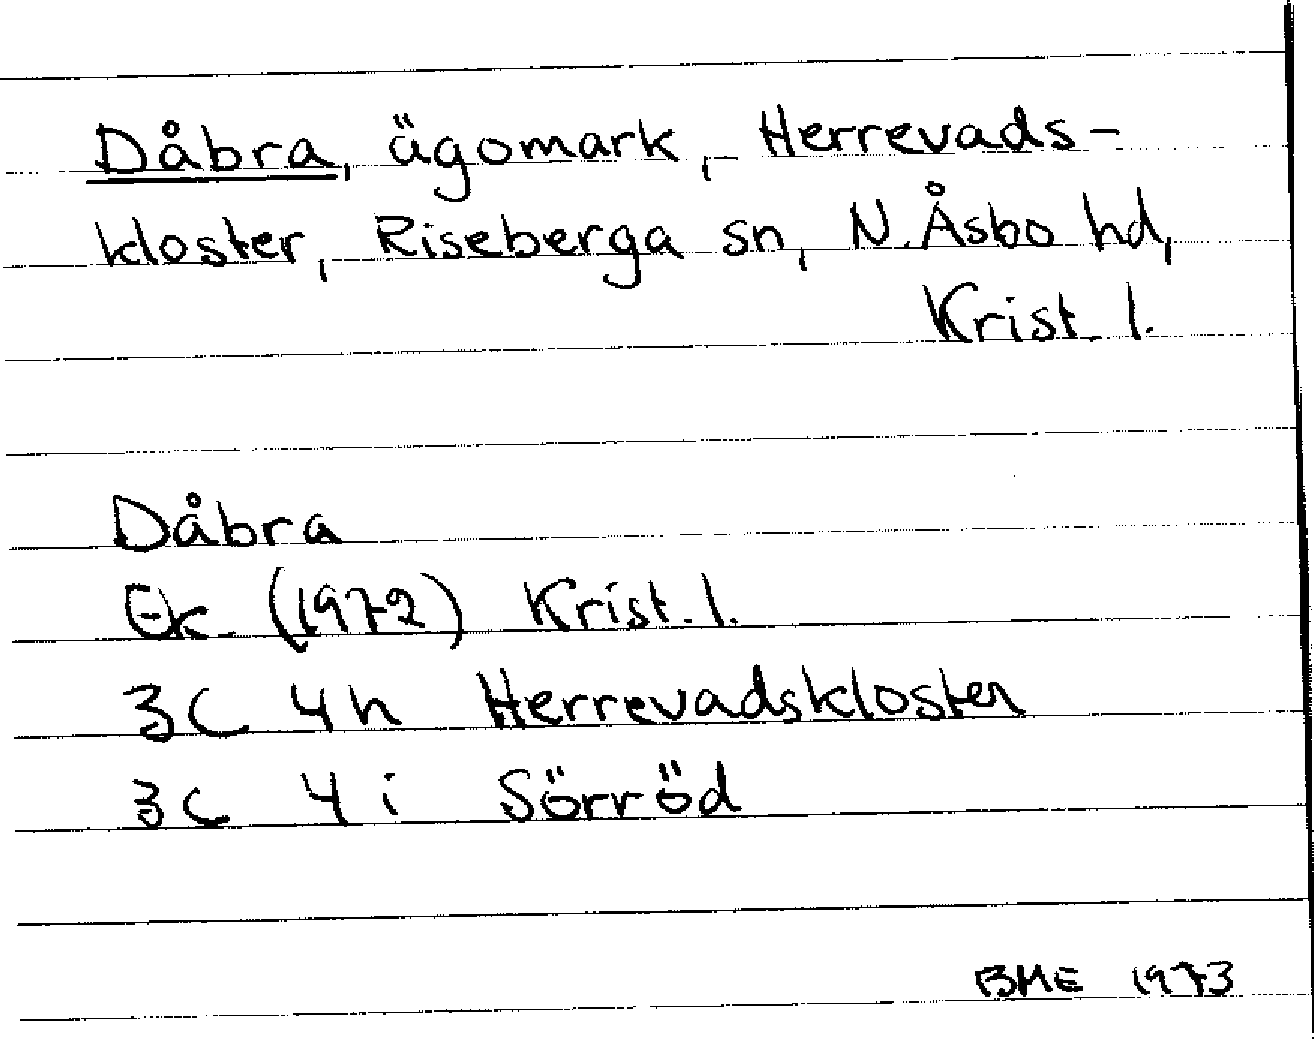 Dåbra, ägomark, Herrevads-
kloster, Riseberga sn, N. Åsbo hd,
Krist. l.
Dåbra
Ek. (1972) Krist. l.
3C 4h Herrevadskloster
3C 4i Sörröd
BME 1973